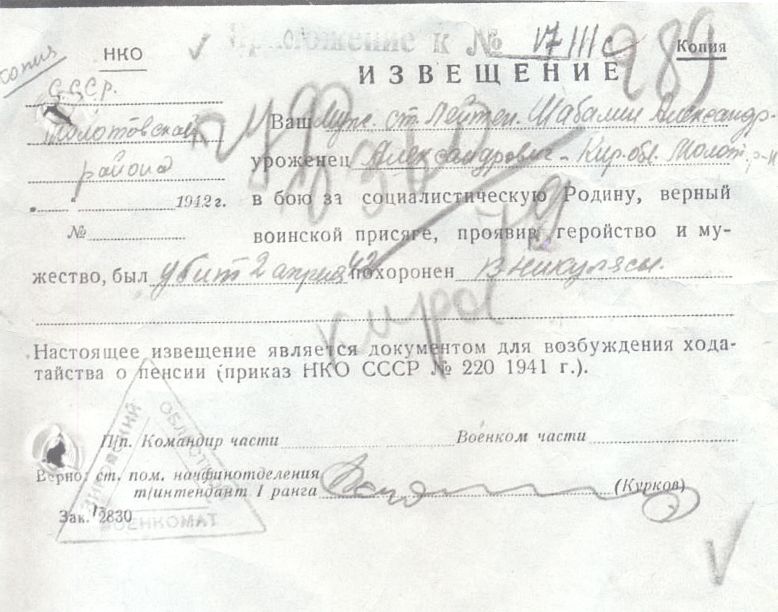 Приложение к № VI IIIс
копия
НКО
Копия
СССР.
989
ИЗВЕЩЕНИЕ
Молотовский
Ваш Муж. ст. Лейтен. Шабалин Александр
района
уроженец Александрович - Кир. обл. Молот. р-н
1942 г.
в бою за социалистическую Родину, верный
№
воинской присяге, проявив геройство и му-
жество, был убит 2 апреля 42 похоронен в Никулясы.
Настоящее извещение является документом для возбуждения хода-
тайства о пенсии (приказ НКО СССР № 220 1941 г.).
П/п. Командир части Военком части
Верно: ст. пом. начфинотделения
т/интендант 1 ранга (Курков)
Зак. 2830
ОБЛАСТНОЙ
ВОЕНКОМАТ